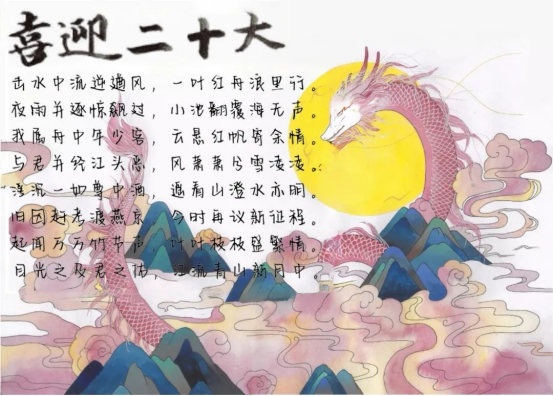 喜迎二十大
击水中流逆遒风，一叶红舟浪里行。
夜雨并逐惊飙过，小池翻覆海无声。
我属舟中年少客，云悬红帆寄余情。
与君并终江头恶，风萧萧兮雪凌凌。
浮沉一如尊中酒，遍看山澄水亦明。
旧因赶考渡燕京，今时再议新征程。
起闻万万竹节声，叶叶枝枝盛繁情。
目光之及君之，青山新月中。